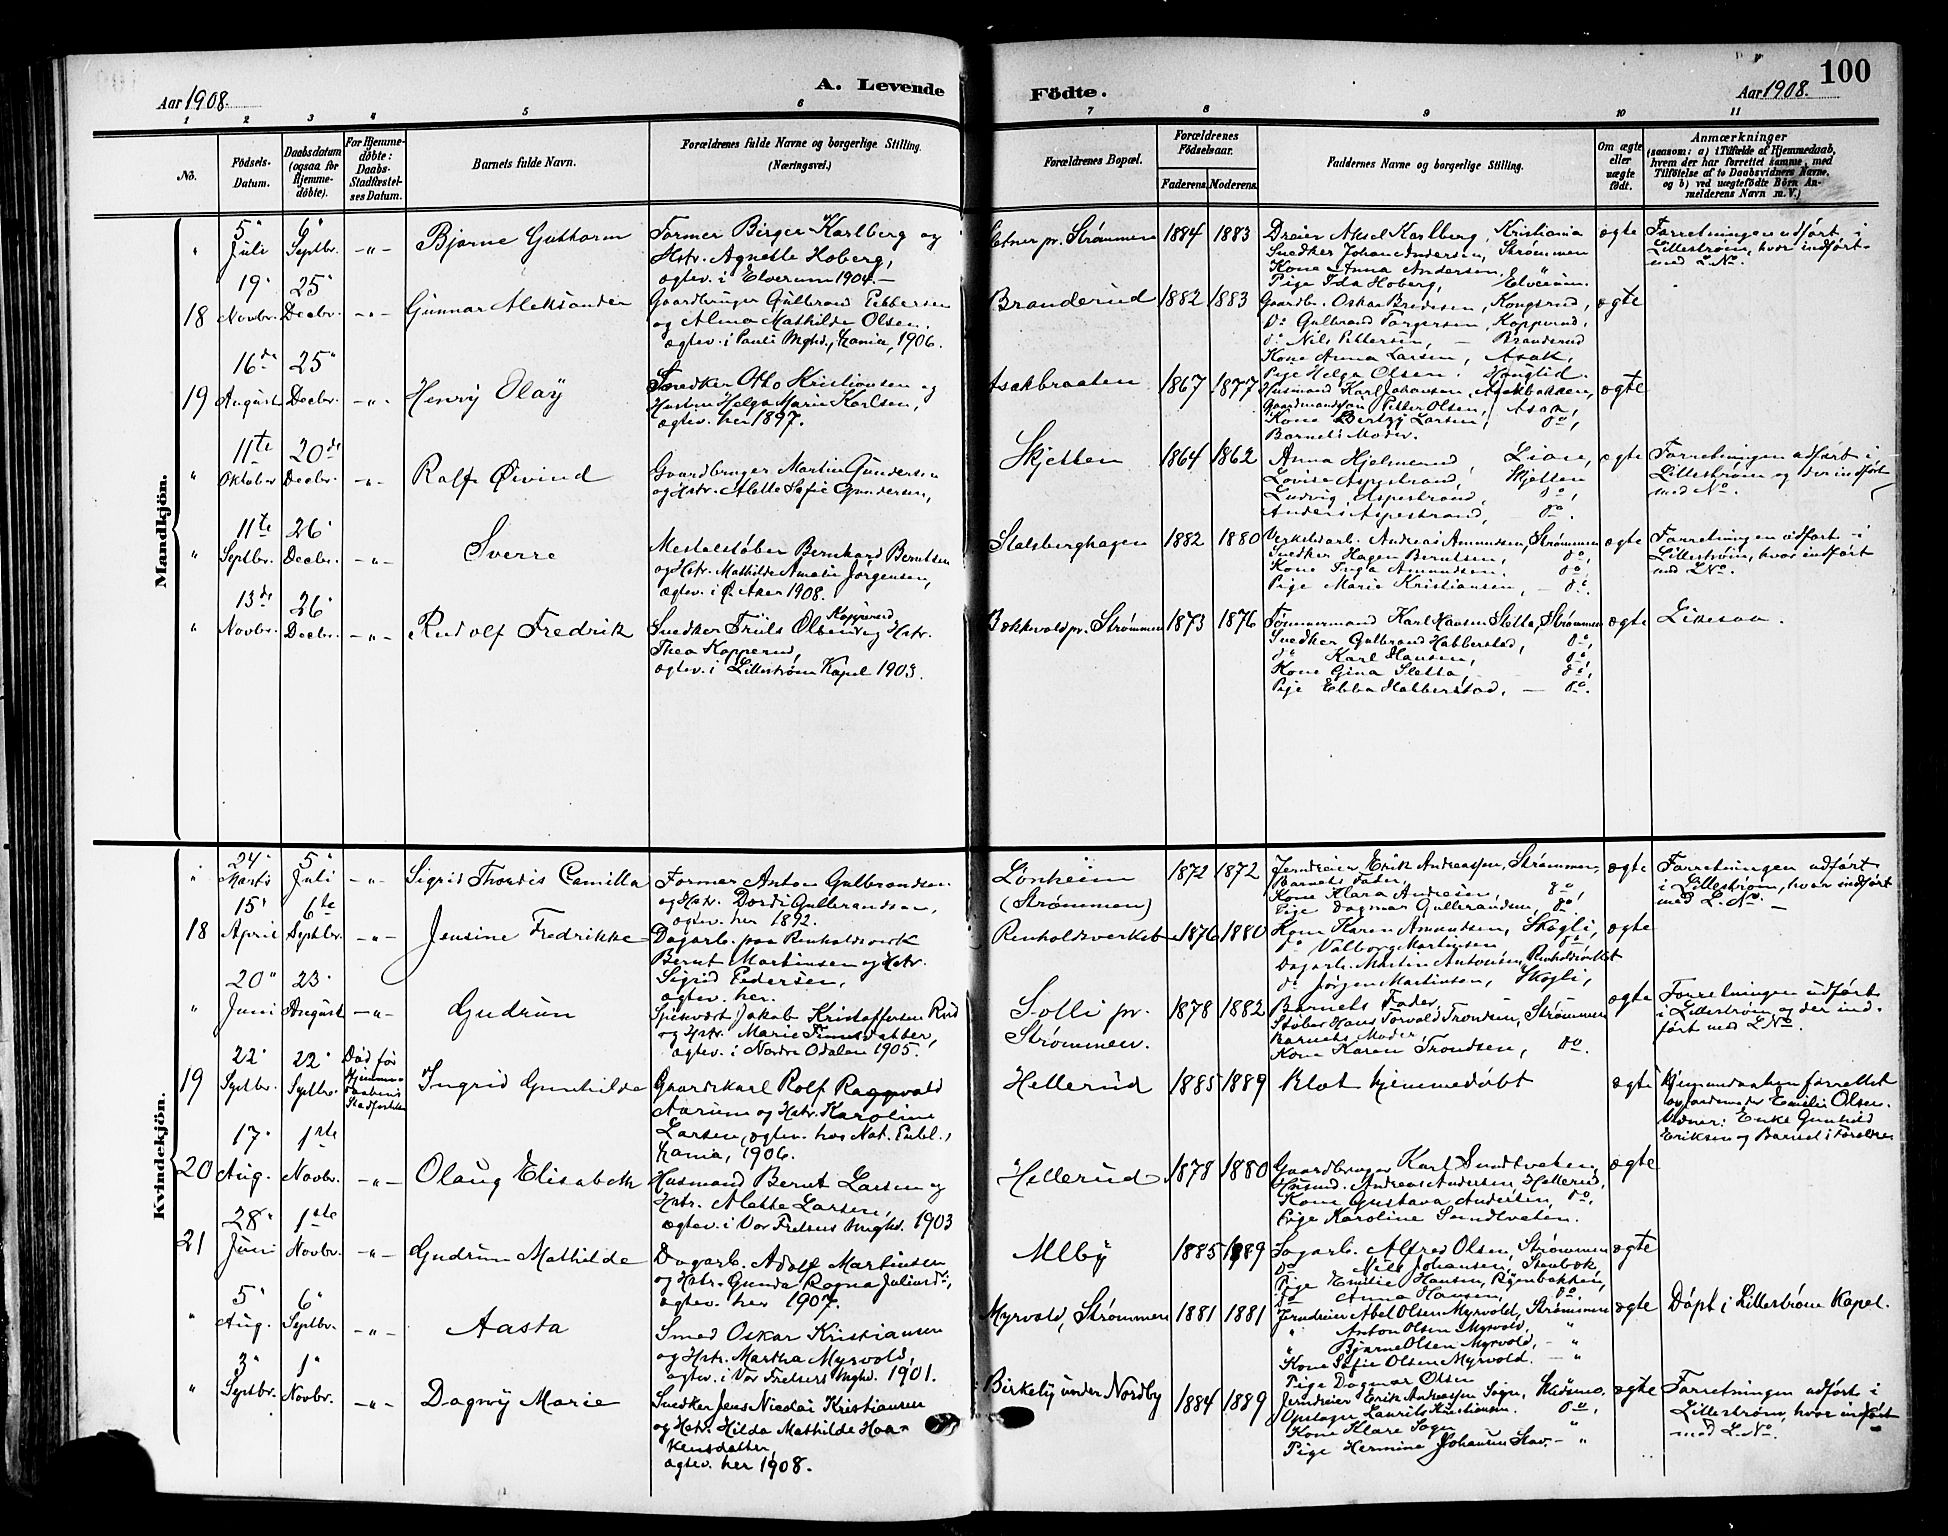 Aar 1908.
A. Levende
Födte.
100
Aar 1908.
1 2 3 4 5 6 7 8 9 10 11
No.
Födsels-
Datum.
Daabsdatum
(ogsaa for
Hjemme-
döbte).
For Hjemme-
döbte:
Daabs-
Stadfæstel-
ses Datum.
Barnets fulde Navn.
Forældrenes fulde Navne og borgerlige Stilling.
(Næringsvei.)
Forældrenes Bopæl.
Forældrenes
Födselsaar.
Faderens. Moderens.
Faddernes Navne og borgerlige Stilling.
Om ægte
eller
uægte
födt.
Anmærkninger
(saasom: a) i Tilfælde af Hjemmedaab,
hvem der har forrettet samme, med
Tilföielse af to Daabsvidners Navne,
og b) ved uægtefödte Börn An-
melderens Navn m. V.)
Mandkjön.
" 5" Juli 6" Septbr. -"- Bjarne Guthorm
Former Birger Karlberg og
Hstr. Agnette Hoberg,
ægtev. i Elverum 1904.-
Strømmen 1884 1883
Dreier Aksel Karlberg, Kristiania
Snedker Johan Andersen, Strømmen
Kone Anna Andersen, "
Pige Ida Hoberg, Elverum.
ægte
Forretningen udført i
Lillestrøm, hvor indført
med L No.
18 19" Novbr. 25" Decbr. -"- Gunnar Aleksander
Gaardbruger Gulbrand Pebbersen
og Alma Mathilde Olsen.
ægtev. i Pauli Mghd., Kania, 1906.
Branderud 1882 1883
Gaardbr. Oskar Bredesen, Kongsrud,
Do Gulbrand Torgersen, Kopperud,
do Nils Pettersen, - Branderud
Kone Anna Larsen, Asak,
Pige Helga Olsen,
ægte
19 16de August 25" Decbr. -"- Henry Olaf
Snedker Otto Kristiansen og
Hustru Helga Marie Karlsen,
ægtev. her 1897.
Asakbraaten 1867 1877
Husmand Karl Johansen, Asakbakken,
Gaardmandssøn Petter Olsen, Asak,
Kone Larsen, do,
Barnets Moder.
ægte
" 11te Oktober 20de Decbr. -"- Rolf Øivind
Gaardbruger Martin Gundersen
og Hstr. Alette Sofie Gundersen,
Skjetten 1864 1862
Anna Hjelmerud
Lovise Aspestrand, Skjetten
Ludvig Aspestrand, do,
Anders Aspestrand, - do.
ægte
Forretningen udført i
Lillestrøm og der indført
med No.
" 11te Septbr. 26" Decbr. -"- Sverre
Metalstøber Bernhard Berntsen
og Hstr. Mathilde Amalie Jørgensen,
ægtev. i Ø. Aker 1908.
Stalsberghagen 1882 1880
Verkstedsarb. Andreas Amundsen, Strømmen
Snedker Hagen Berntsen, do,
Kone Inga Amundsen, do,
Pige Marie Kristiansen, - do.
ægte
Forretningen udført i
Lillestrøm, hvor indført
med L No.
" 13de Novbr. 26" Decbr. -"- Rudolf Fredrik
Snedker Truls Olsen Kopperud og Hstr.
Thea Kopperud,
ægtev. i Lillestrøm Kapel 1903.
Bækkvold pr. Strømmen 1873 1876
Tømmermand Karl Hansen Sletta, Strømmen
Snedker Gulbrand Habberstad, do,
do Karl Hansen, do,
Kone Gina Sletta, - do,
Pige Ebba Habberstad, - do.
ægte
Ligesaa.
Kvindekjön.
" 24" Marts 5" Juli -"- Sigrid Thordis Camilla
Former Anton Gulbrandsen
og Hstr. Dordi Gulbrandsen,
ægtev. her 1892.
Lønheim
(Strømmen)
1872 1872
Jerndreier Erik Andreassen, Strømmen,
Barnets Fader,
Kone Klara Andresen, do,
Pige Dagmar Gulbrandsen, do
ægte
Forretningen udført
i Lillestrøm, hvor indført
med L. No. -
18 15" April 6te Septbr. -"- Jensine Fredrikke
Dagarb. paa Renholdsverk
Bernt Martinsen og Hstr.
Sigrid Pedersen,
ægtev. her.
Renholdsverket 1876 1880
Kone Karen Amundsen, Skogli,
do Valborg Martinsen do
Dagarb. Martin Antonsen, Renholdsverket
do Jørgen Martinsen, Skogli,
ægte
" 20" Juni 23" August -"- Gudrun
Jakob Kristoffersen Rud
og Hstr. Marie
ægtev. i Nordre Odalen 1905.
Solli pr.
Strømmen.
1878 1882
Barnets Fader,
Støber Hans Torvald Trondsen, Strømmen
Barnets Moder,
Kone Karen Trondsen, do.
ægte
Forretningen udført
i Lillestrøm og der ind-
ført med L No.
19 22" Septbr. 22" Septbr. Død før
Hjemme-
daabens
Stadfæstelse
Ingrid Gunhilde
Gaardskarl Rolf Ragnvald
Aarum og Hstr. Karoline
Larsen, ægtev. hos Not. Publ.,
Kania, 1906.
Hellerud 1885 1889
Blot hjemmedøbt
ægte
Hjemmedaaben forrettet
av jordemoder Emilie Olsen.
Vidner: Enke Gunhild
Eriksen og Barnets Forældre
20 17" Aug. 1ste Novbr. -"- Olaug Elisabeth
Husmand Bernt Larsen og
Hstr. Alette Larsen,
ægtev. i Vor Frelsers Mghd. 1903
Hellerud 1878 1880
Gaardbruger Karl Sundtveten,
Husmd. Andreas Andersen, Hellerud,
Kone Gustava Andersen, do,
Pige Karoline Sundtveten.
ægte
21 28" Juni 1ste Novbr. -"- Gudrun Mathilde
Dagarb. Adolf Martinsen
og Hstr. Gunda Ragna Juliusdr.,
ægtev. her 1907.
Melby 1885 1889
Sagarb. Alfred Olsen, Strømmen
Do Nils Johansen, Stenbæk,
Pige Emilie Hansen,
do Anna Hansen, do.
ægte
" 5" Aug. 6" Septbr. -"- Aasta
Smed Oskar Kristiansen
og Hstr. Martha Myrvold,
ægtev. i Vor Frelsers Mghd. 1901.
Myrvold, Strømmen 1881 1881
Jerndreier Abel Olsen Myrvold, Strømmen
" Anton Olsen Myrvold, "
" Bjarne Olsen Myrvold, - "
Kone Sofie Olsen Myrvold. - "
Pige Dagmar Olsen
ægte
Døpt i Lillestrøm Kapel.
" 3" Septbr. 1" Novbr. -"- Dagny Marie
Snedker Jens Nicolai Kristiansen
og Hstr. Hilda Mathilde Haa-
kensdatter,
ægtev. her 1908.
Birkely under Nordby 1884 1889
Jerndreier Erik Andreassen Sogn, Skedsmo,
Opslager Laurits Kristiansen. do,
Kone Klara Sogn "
Pige Hermine Johansen - "
ægte
Forretningen udført i
Lillestrøm, hvor indført
med L. No.